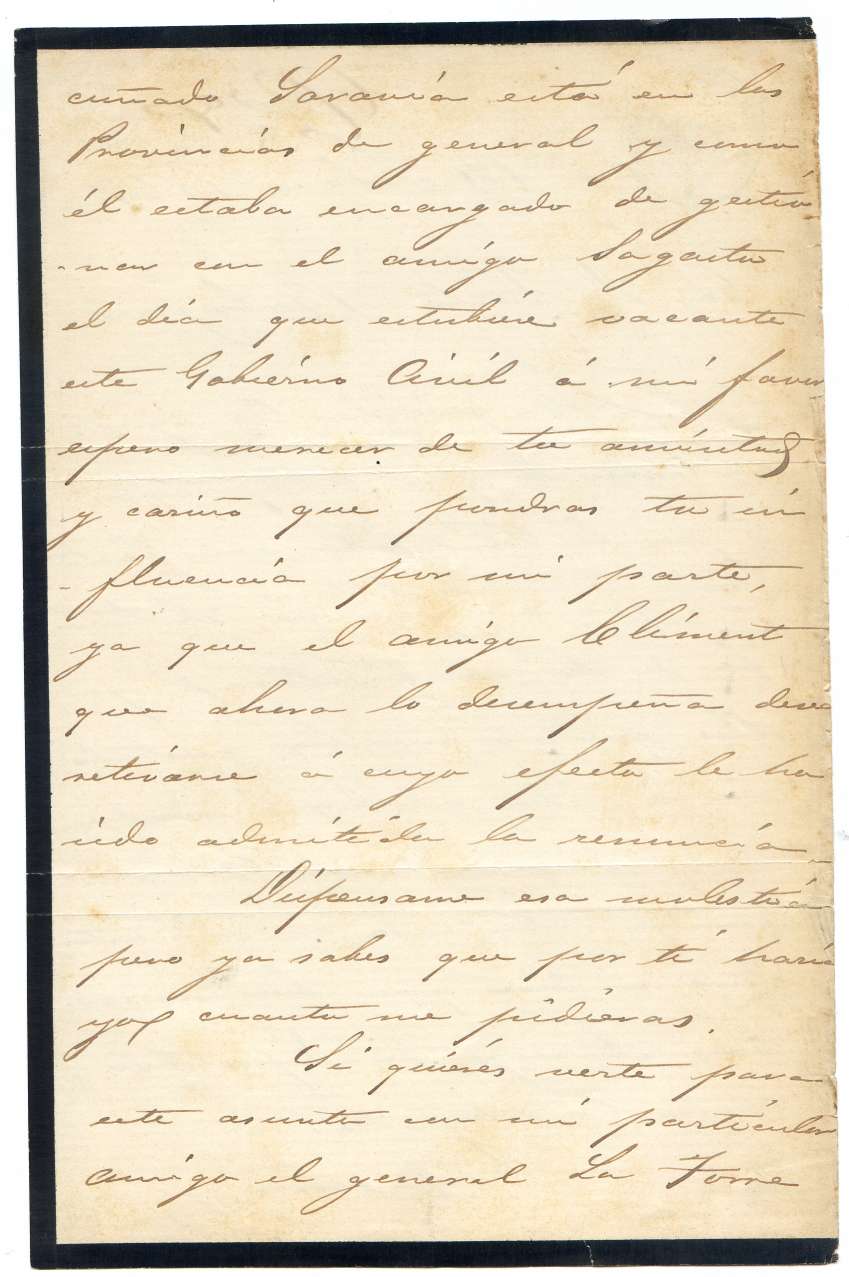 cuñado Saravia está en las
Provincias de general y como
él estaba encargado de gestio
-nar con el amigo Sagasta
el día que estubiére vacante
este Gobiérno Civíl á mi favor
espero merecer de tu amistad
y cariño que pondras tu in
-fluencia por mi parte,
ya que el amigo Climent
que ahora lo desempeña desea
retirarse á cuyo efecto le ha
sido admitida la renuncia.
Dispensame esa molestia
pero ya sabes que por tí haria
yo cuanto me pidieras.
Si quiérés verte para
este asunto con mi particular
amigo el general La Torre